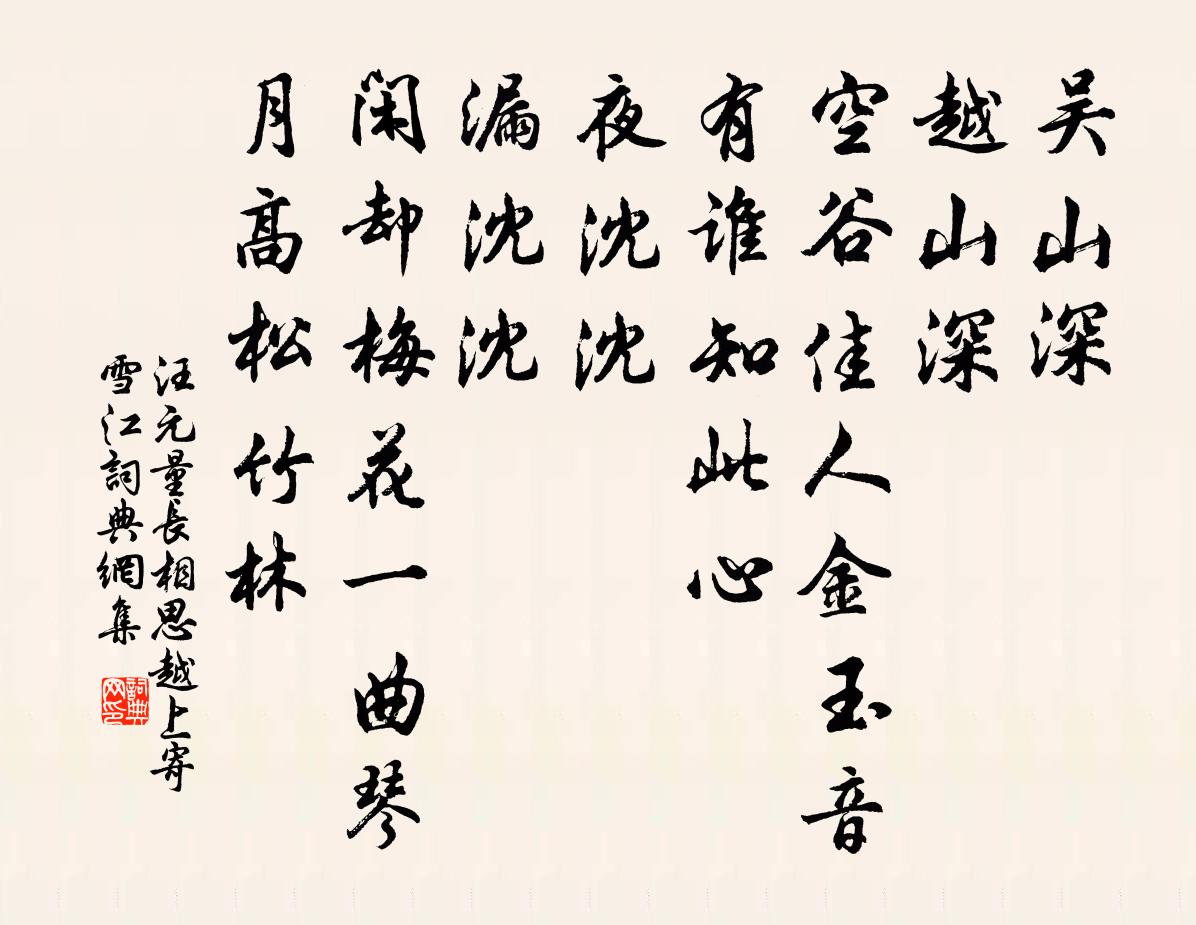 吴山深
越山深
空谷佳人金玉音
有谁知此心
夜沈沈
漏沈沈
闲却梅花一曲琴
月高松竹林
汪元量長相思越上寄
雪江詞典網集
詞典网印